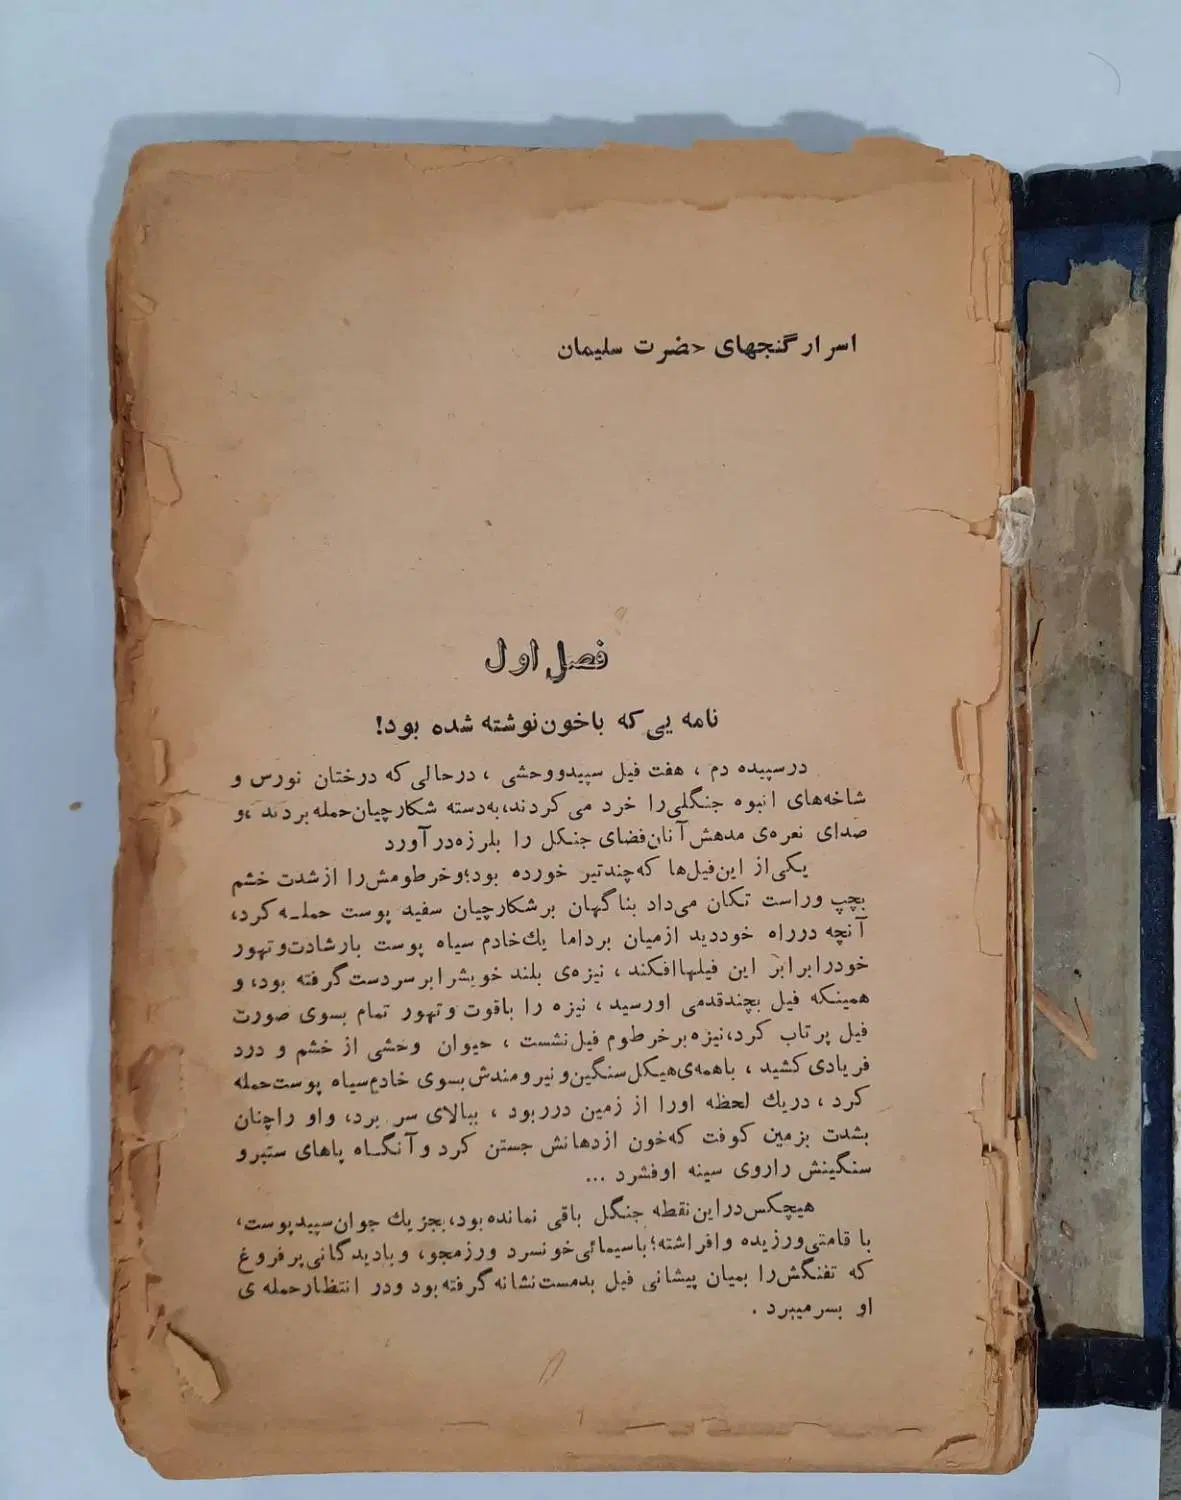 اسرار گنجهای حضرت سلیمان
فصل اول
نامه یی که باخون نوشته شده بود!
درسپیده دم ، هفت فیل سپیدووحشی ، درحالی که درختان نورس و
شاخه‌های انبوه جنگلی را خرد می کردند،به‌دسته شکارچیان‌حمله بردند ،و
صدای نعره‌ی مدهش آنان‌فضای جنگل را بلرزه‌درآورد
یکی از این‌فیل‌ها که‌چندتیر خورده بود؛وخرطومش‌را ازشدت خشم
بچپ وراست تکان می‌داد بناگهان برشکارچیان سفید پوست حمله کرد،
آنچه درراه خوددید ازمیان برداما یك‌خادم سیاه پوست بارشادت‌وتهور
خودرابرابر این فیلهاافکند ، نیزه‌ی بلند خویشرابرسردست‌گرفته بود، و
همینکه فیل بچندقدمی اورسید ، نیزه را باقوت وتهور تمام بسوی صورت
فیل پرتاب کرد،نیزه‌برخرطوم فیل‌نشست ، حیوان وحشی از خشم و درد
فریادی کشید ، باهمه‌ی‌هیکل‌سنگین‌ونیرومندش‌بسوی خادم‌سیاه پوست‌حمله
کرد ، دریك لحظه اورا از زمین درربود ، ببالای سر برد، واو راچنان
بشدت بزمین کوفت که‌خون ازدهانش جستن کرد وآنگاه پاهای ستبرو
سنگینش راروی سینه اوفشرد ...
هیچکس‌دراین‌نقطه جنگل باقی نمانده‌بود،بجزیك جوان‌سپیدپوست،
با قامتی‌ورزیده وافراشته؛باسیمائی‌خونسرد ورزمجو، وبادیدگانی‌پرفروغ
که تفنگش‌را بمیان پیشانی فیل بدمست‌نشانه‌گرفته‌بود ودر انتظارحمله‌ی
او بسرمیبرد .